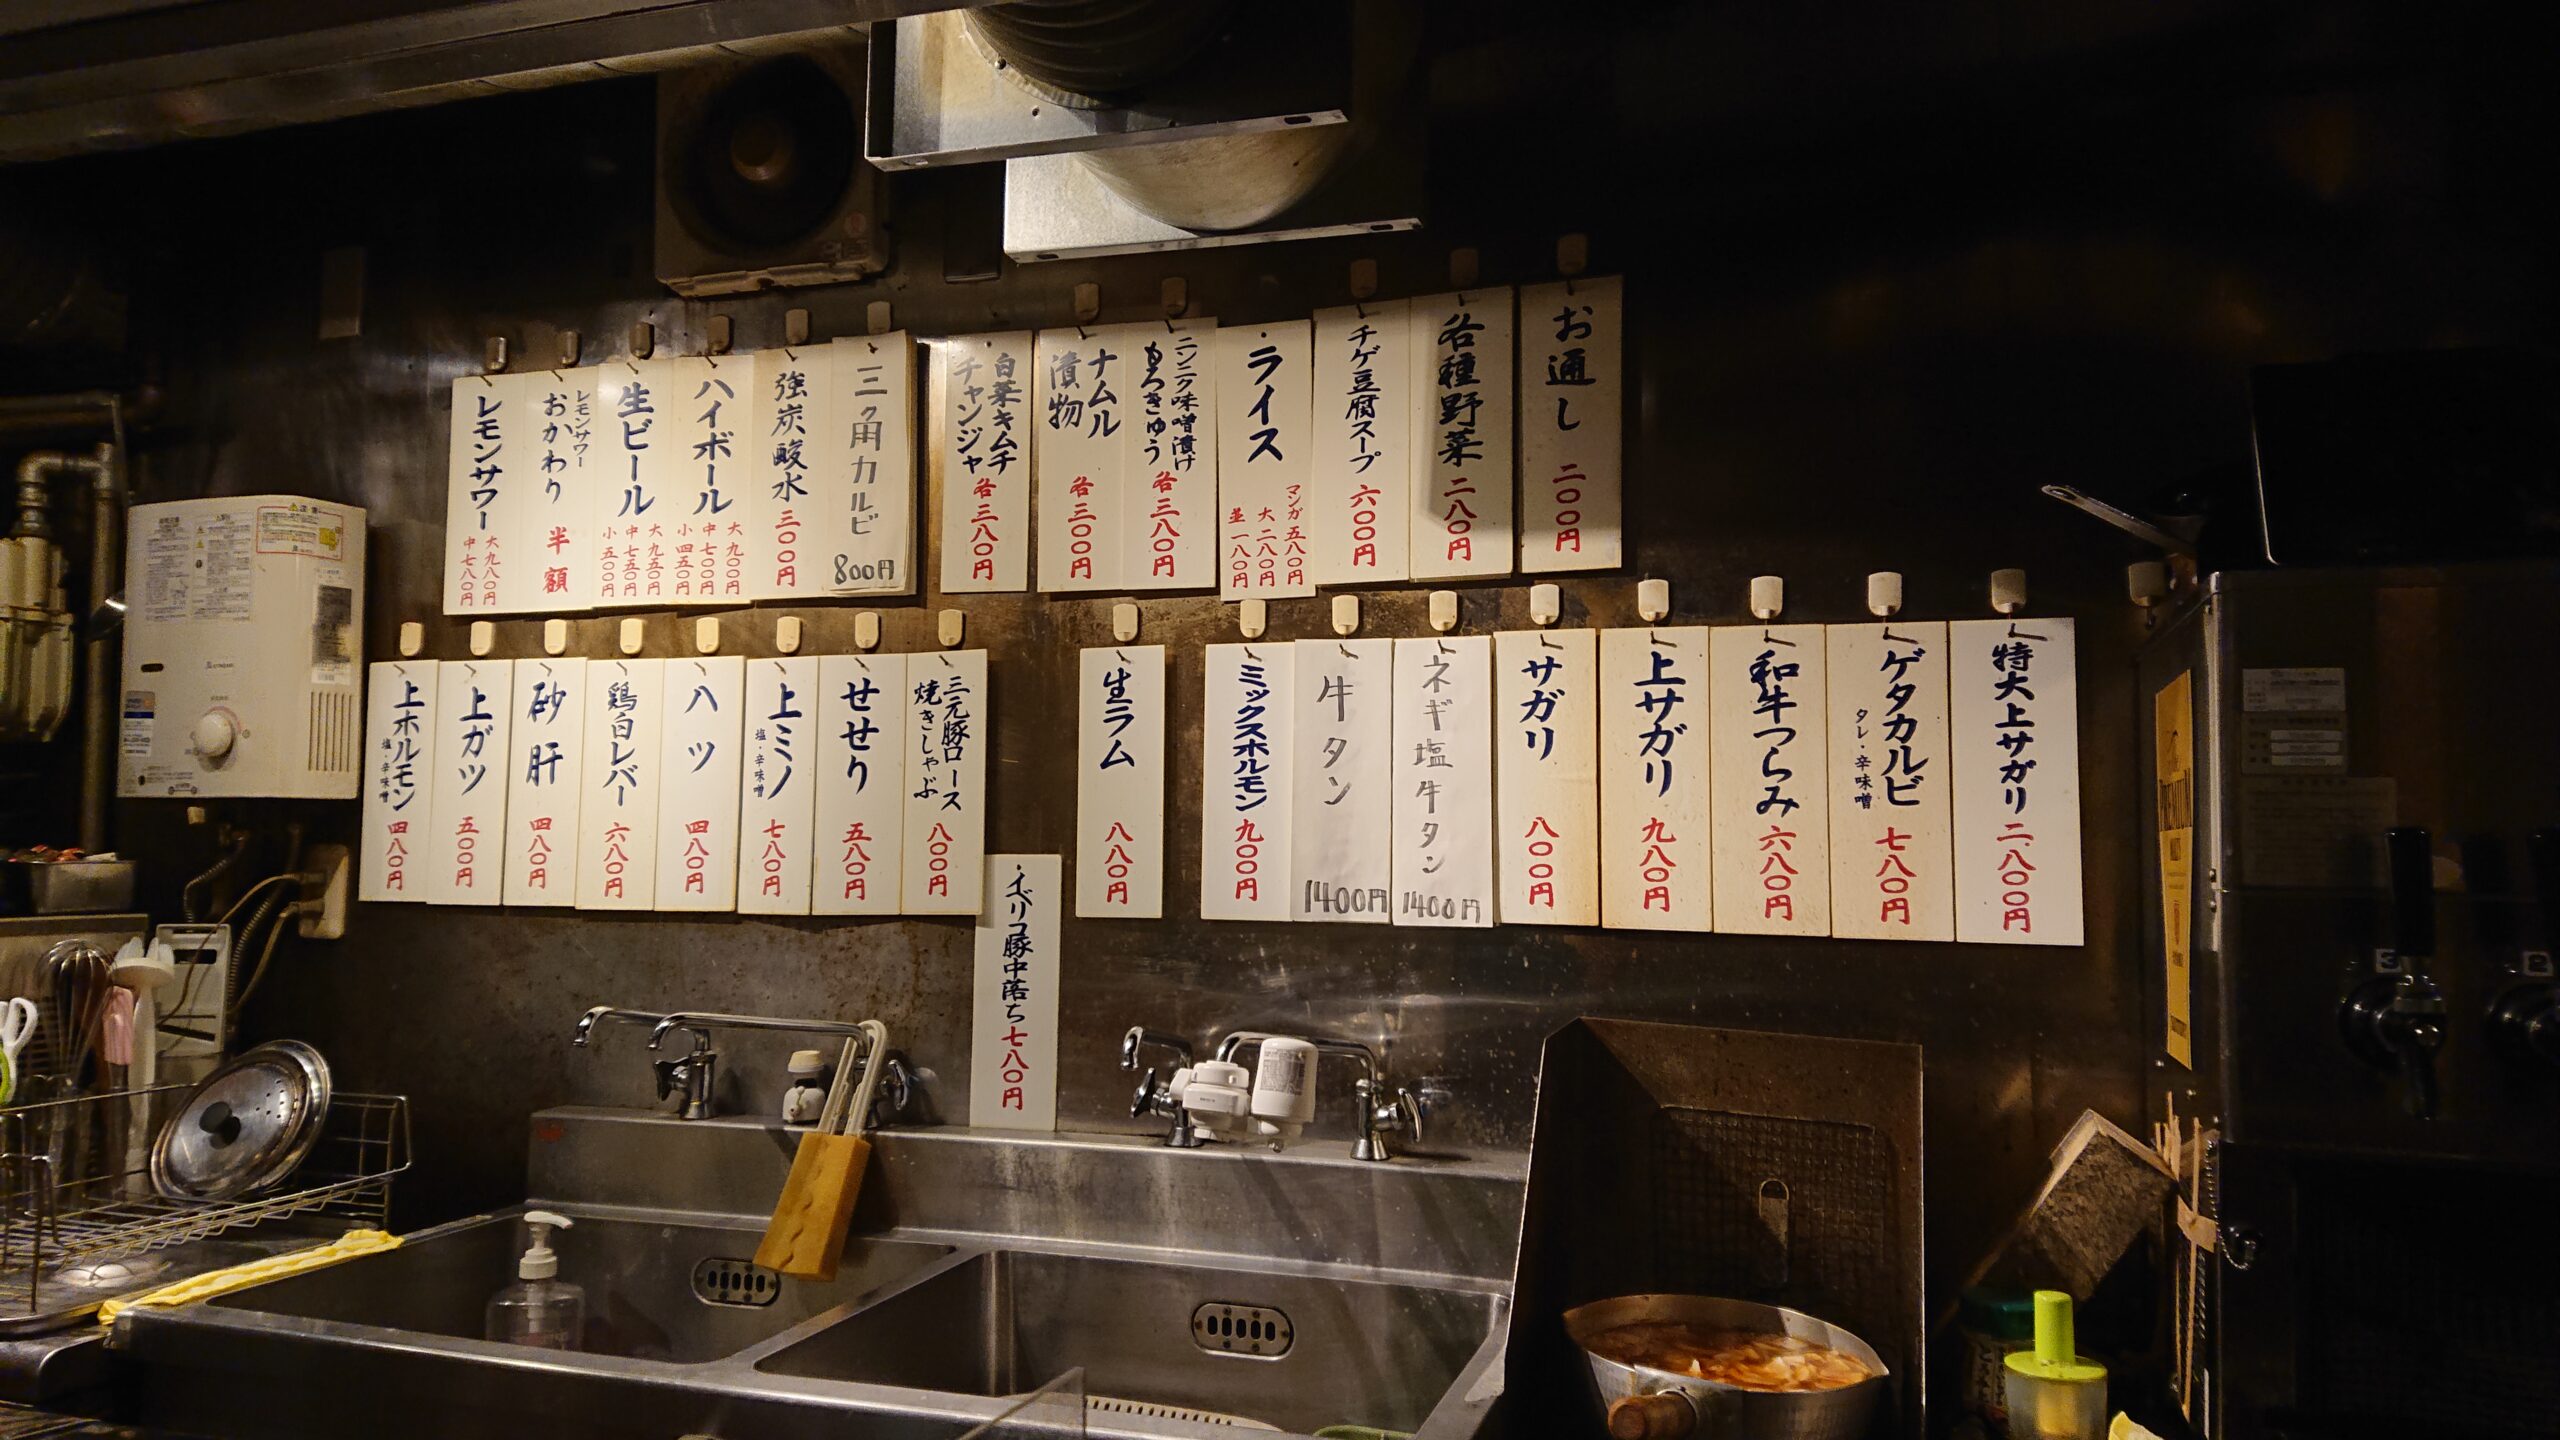 お通し 二〇〇円
各種野菜 二八〇円
チゲ豆腐スープ 六〇〇円
・ライス
マンガ 五八〇円
大 二八〇円
並 一八〇円
ニンニク味噌漬け
もろきゅう
各三八〇円
ナムル
漬物
各三〇〇円
白菜キムチ
チャンジャ
各三八〇円
三角カルビ
800円
強炭酸水 三〇〇円
ハイボール
大 九〇〇円
中 七〇〇円
小 四五〇円
生ビール
大 九五〇円
中 七五〇円
小 五〇〇円
レモンサワー
おかわり 半額
レモンサワー
大 九八〇円
中 七八〇円
特大上サガリ 二、八〇〇円
ゲタカルビ 七八〇円
タレ・辛味噌
和牛つらみ 六八〇円
上サガリ 九八〇円
サガリ 八〇〇円
ネギ塩牛タン
1400円
牛タン
1400円
ミックスホルモン 九〇〇円
生ラム 八八〇円
・イベリコ豚中落ち 七八〇円
三元豚ロース
焼きしゃぶ
八〇〇円
せせり 五八〇円
上ミノ 七八〇円
塩・辛味噌
ハツ 四八〇円
鶏白レバー 六八〇円
砂肝 四八〇円
上ガツ 五〇〇円
上ホルモン 四八〇円
塩・辛味噌
注意
PREMIUM
3
2